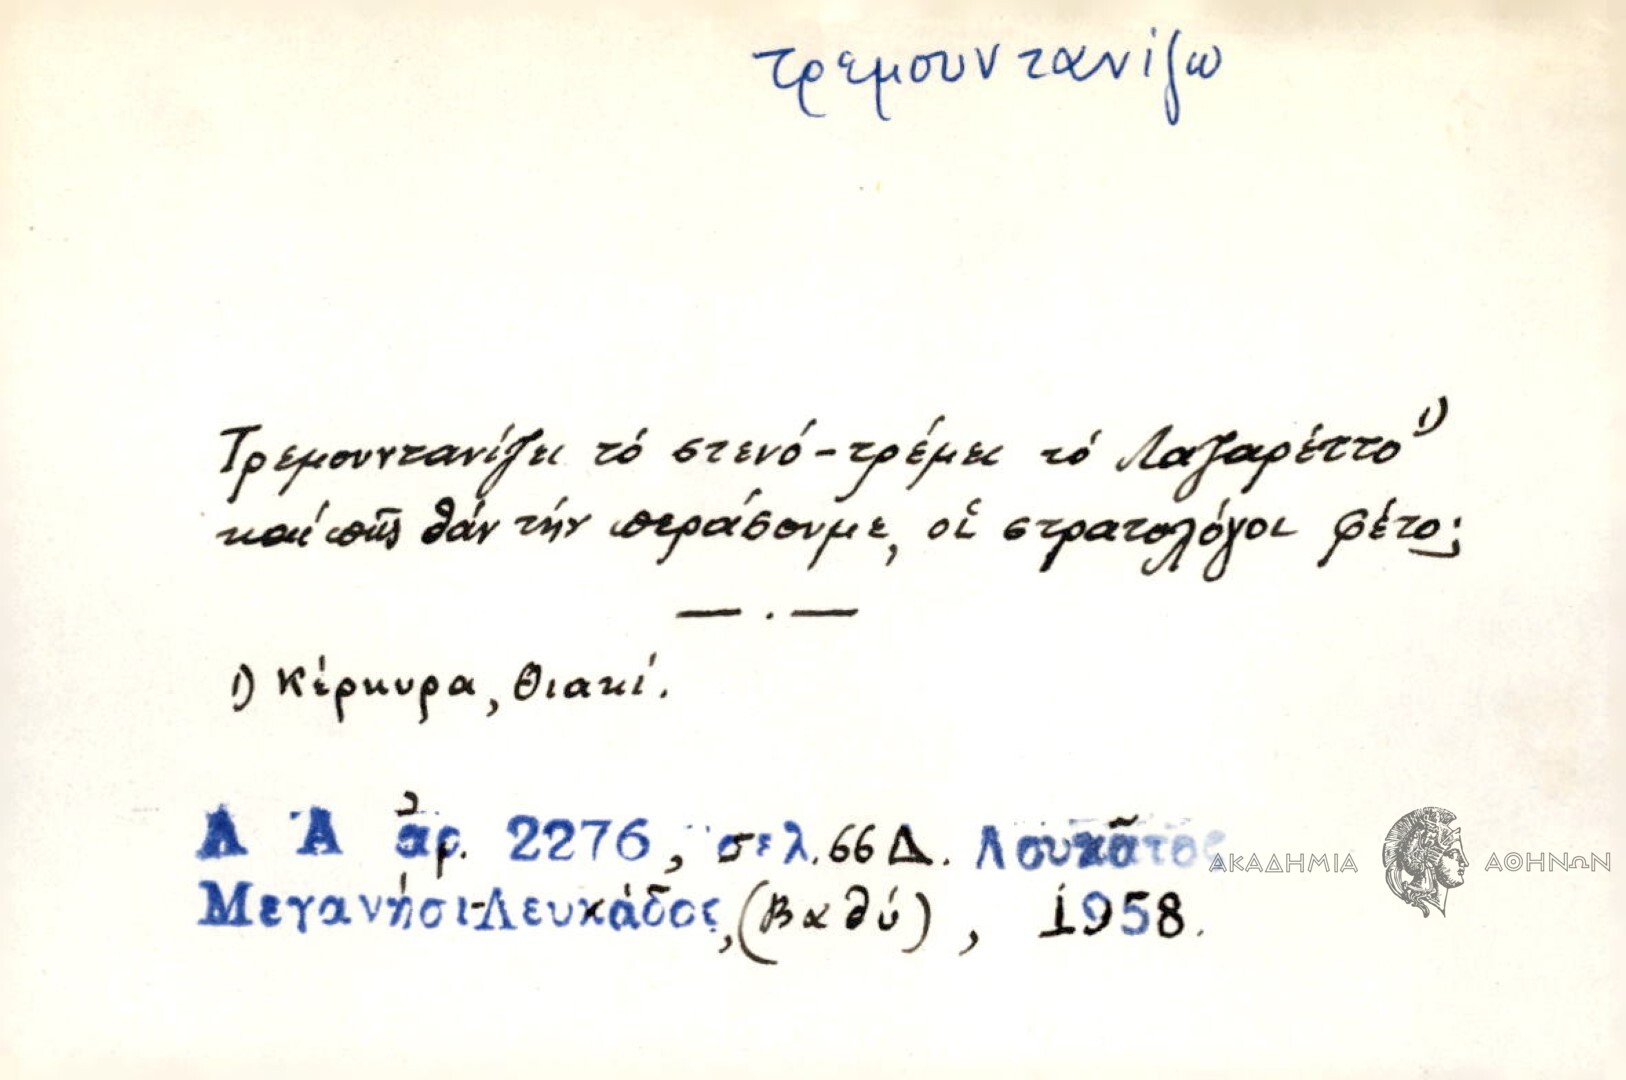 τρεμουντανίζω
Τρεμουντανίζει τό στενό-τρέμει τό Λαζαρέττο¹⁾
καί πῶς θάν τήν περάσουμε, οἱ στρατολόγοι φέτο;
— . —
1) Κέρκυρα, Θιακί.
Λ Α ἀρ. 2276, σελ. 66 Δ. Λουκᾶτος
Μεγανήσι-Λευκάδος, (Βαθύ), 1958.
ΑΚΑΔΗΜΙΑ ΑΘΗΝΩΝ